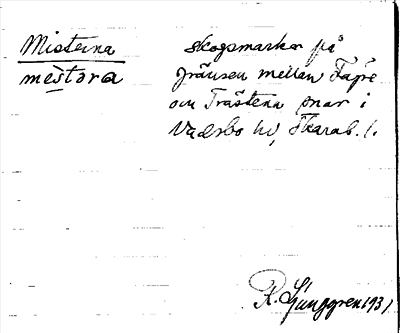 Misterna skogsmarker på
mestöra gränsen mellan Fägre
och Trästena snar i
Vadsbo hd, Skarab. l.
R. Ljunggren 1931